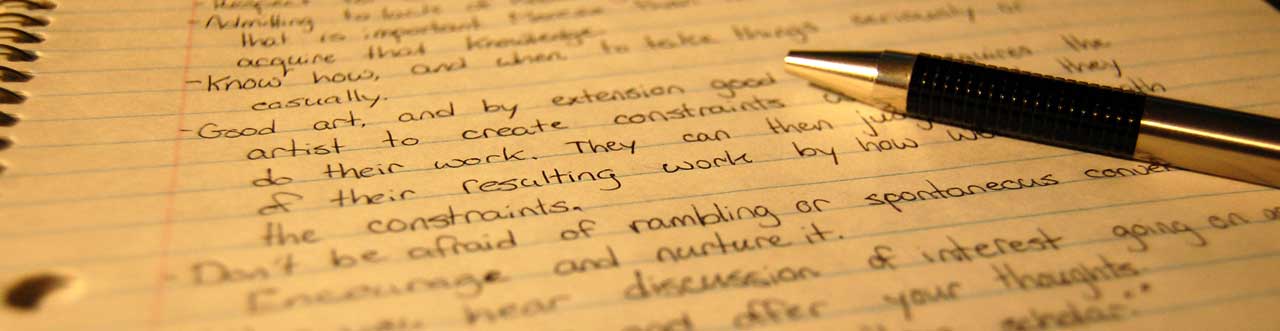 - Admitting to lack of
that is important
acquire that knowledge.
- Know how, and when to take things seriously or
casually.
- Good art, and by extension good requires the
artist to create constraints they
do their work. They can then
of their resulting work by how
the constraints.
- Don't be afraid of rambling or spontaneous
Encourage and nurture it.
hear discussion of interest going on
and offer your thoughts.
scholar."